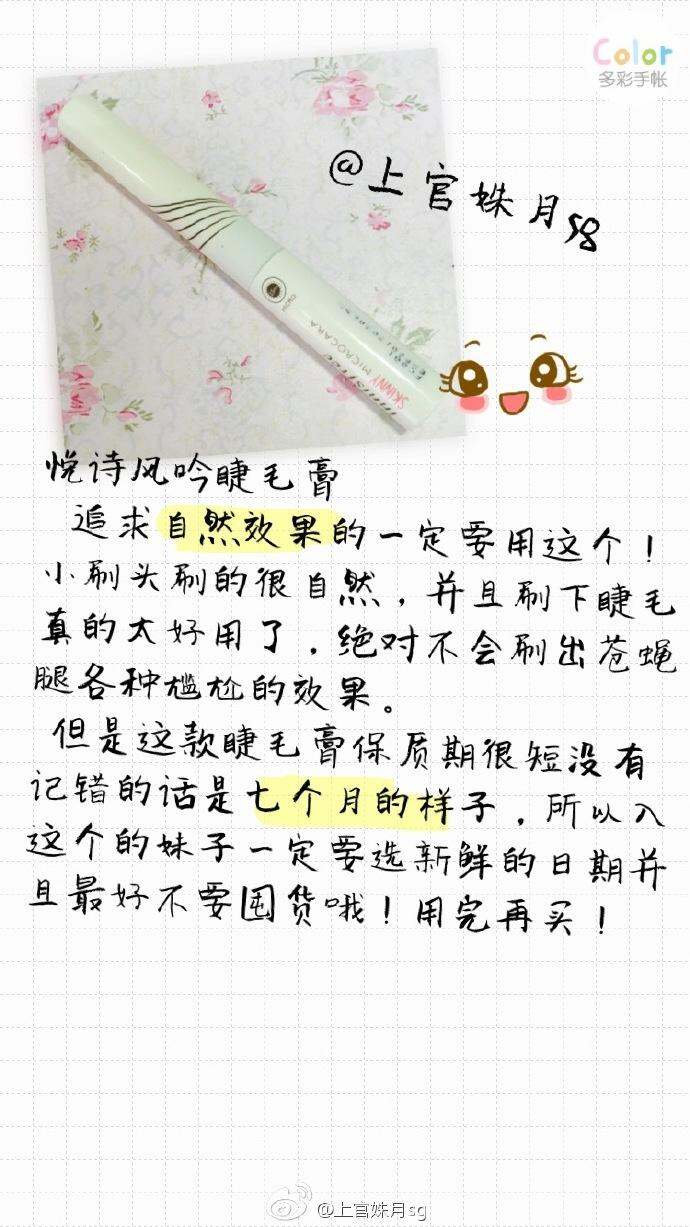 Color
多彩手帐
@上官姝月sg
SKINNY
MICROCARA
悦诗风吟睫毛膏
追求自然效果的一定要用这个！
小刷头刷的很自然，并且刷下睫毛
真的太好用了，绝对不会刷出苍蝇
腿各种尴尬的效果。
但是这款睫毛膏保质期很短没有
记错的话是七个月的样子，所以入
这个的妹子一定要选新鲜的日期并
且最好不要囤货哦！用完再买！
@上官姝月sg